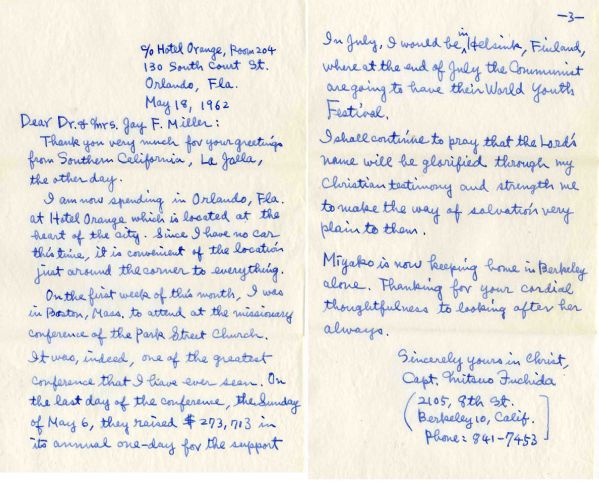 c/o Hotel Orange, Room 204
130 South Court St.
Orlando, Fla.
May 18, 1962
Dear Dr. & Mrs. Jay F. Miller:
Thank you very much for your greetings
from Southern California, La Jolla,
the other day.
I am now spending in Orlando, Fla.
at Hotel Orange which is located at the
heart of the city. Since I have no car
this time, it is convenient of the location
just around the corner to everything.
On the first week of this month, I was
in Boston, Mass. to attend at the missionary
conference of the Park Street Church.
It was, indeed, one of the greatest
conference that I have ever seen. On
the last day of the conference, the Sunday
of May 6, they raised $273,713 in
its annual one-day for the support
-3-
In July, I would be in Helsink, Finland,
where at the end of July the Communist
are going to have their World Youth
Festival.
I shall continue to pray that the Lord's
name will be glorified through my
Christian testimony and strength me
to make the way of salvation very
plain to them.
Miyako is now keeping home in Berkeley
alone. Thanking for your cordial
thoughtfulness to looking after her
always.
Sincerely yours in Christ,
Capt. Mitsuo Fuchida
(2105, 8th St.
Berkeley 10, Calif.
Phone: 841-7453)